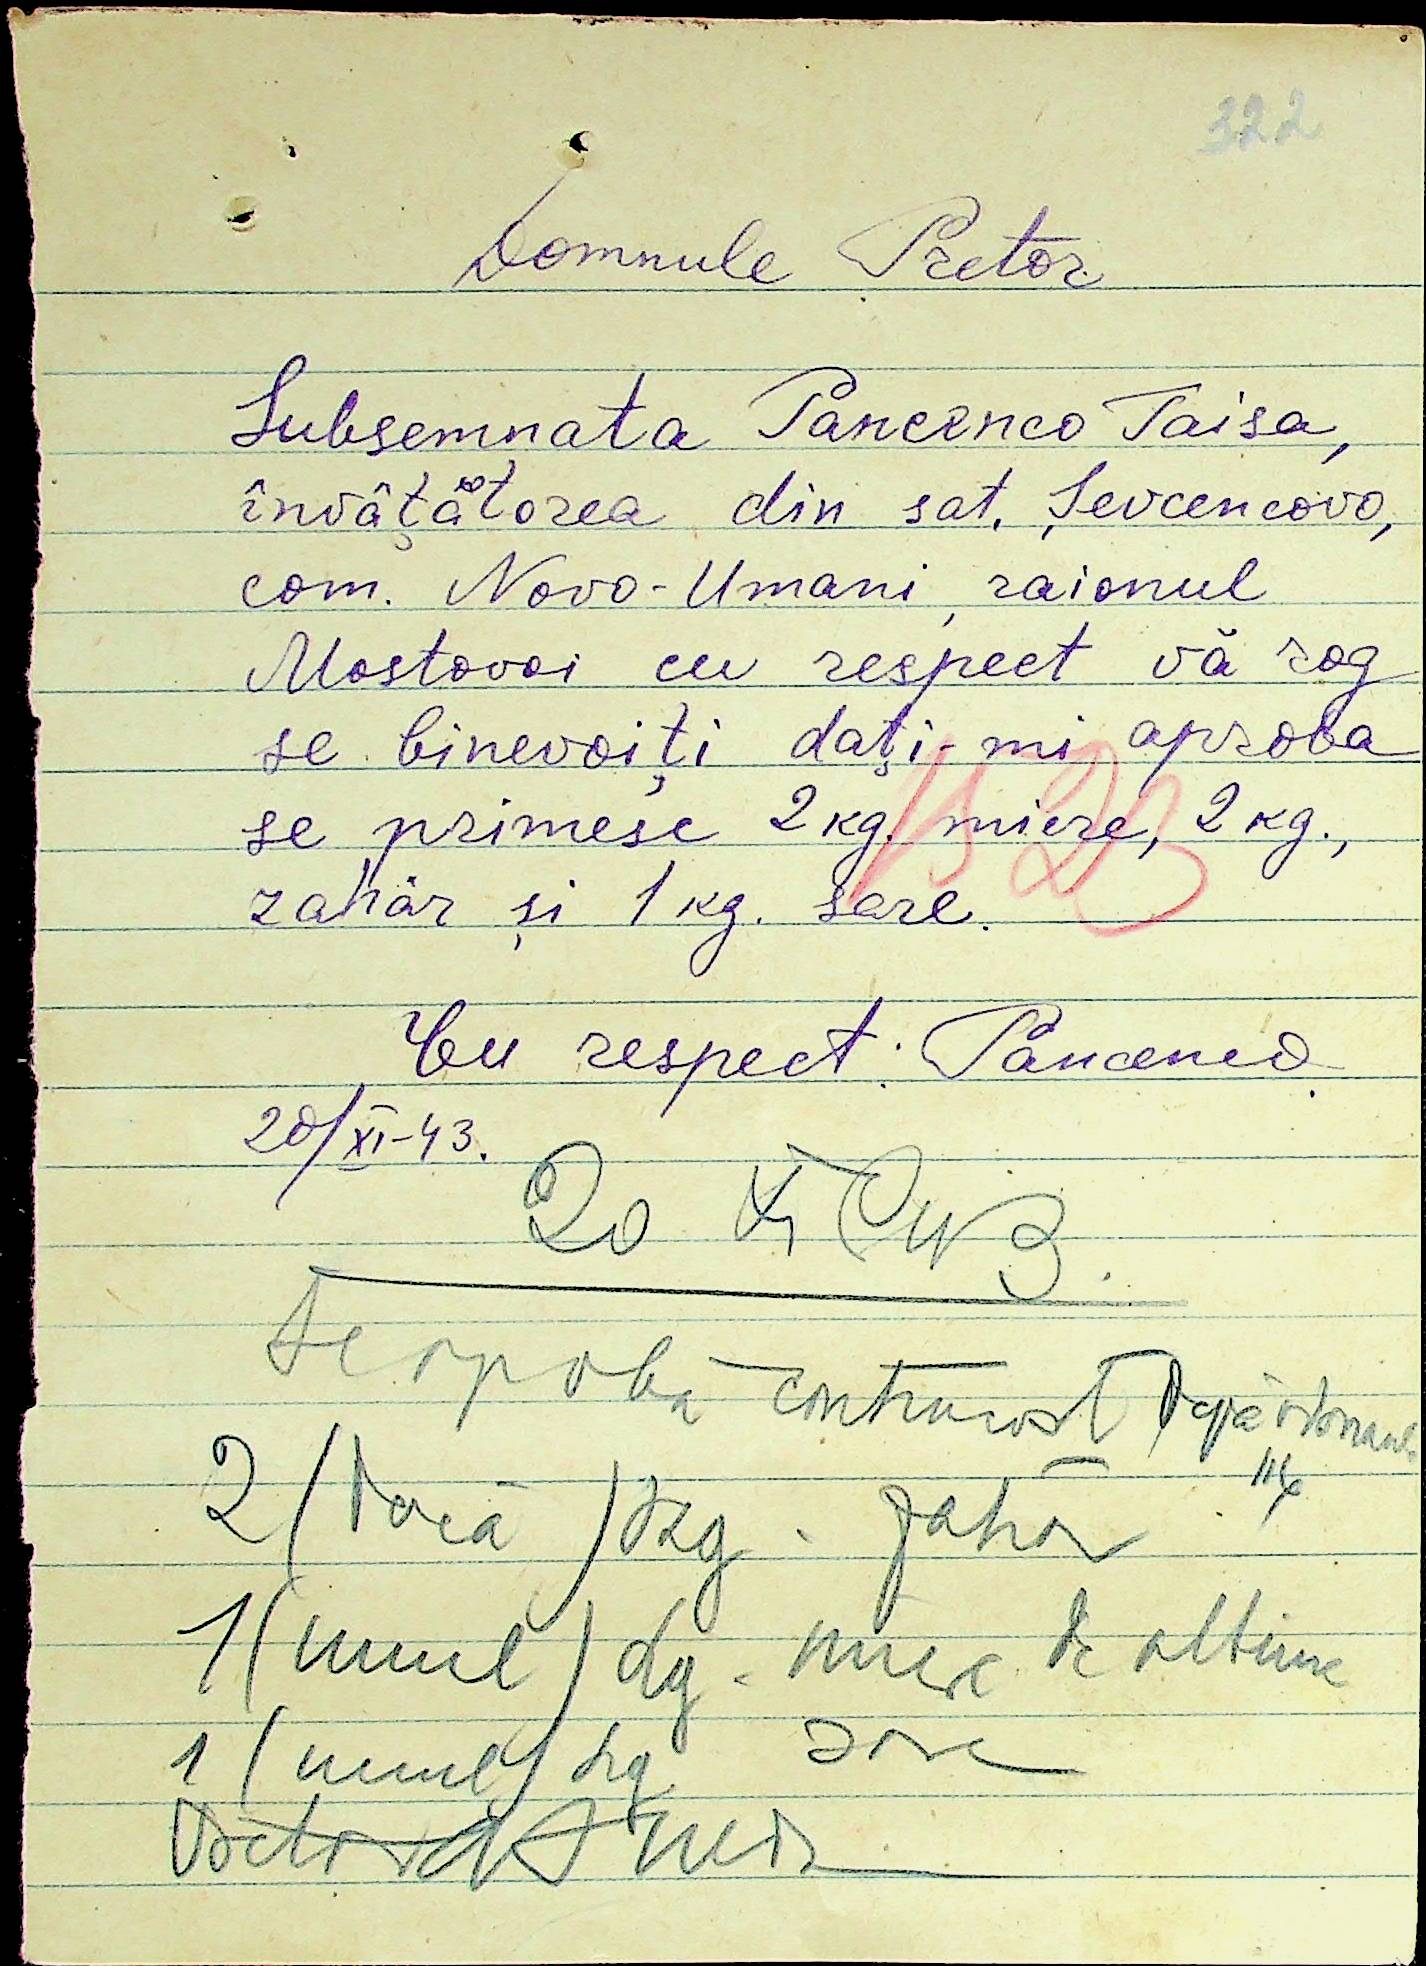 322
Domnule Pretor
Subsemnata Pancenco Taisa,
învâţâtorea din sat. Şevcencovo,
com. Novo-Umani, raionul
Mostovoi cu respect vă rog
se binevoiţi daţi-mi aproba
se primesc 2 kg. miere, 2 kg.,
zahâr şi 1 kg. sare.
Cu respect: Pancenco
20/XI-43.
20 XI 943.
Se aprobă contra cost după
2 (două) kg. zahăr
1 (unul) kg. miere de albine
1 (unul) kg sare